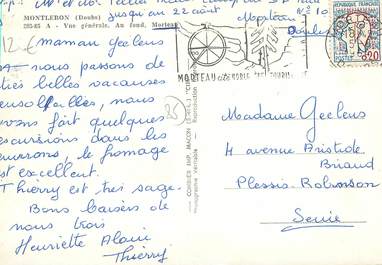 jusqu'au 22 août
Morteau
N° 10
MONTLEBON (Doubs)
285-85 A - Vue générale. Au fond, Morteau
12 €
Maman Geelens
nous passons de
très belles vacances
ensoleillées, nous
avons fait quelques
excursions dans les
environs, le fromage
est excellent.
Thierry est très sage.
Bons baisers de
nous trois
Henriette Alain
Thierry
25
COMBIER IMP. MACON (S.-et-L.)
Reproduction
MORTEAU
REPUBLIQUE FRANÇAISE
POSTES
0,20
Madame Geelens
4 avenue Aristide
Briand
Plessis-Robinson
Seine